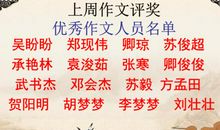 上周作文评奖
优秀作文人员名单
吴盼盼 郑现伟 卿琼 苏俊超
承艳林 袁浚茹 张寒 卿俊俊
武书杰 邓会杰 苏毅 方孟田
贺阳明 胡梦梦 李梦梦 刘壮壮